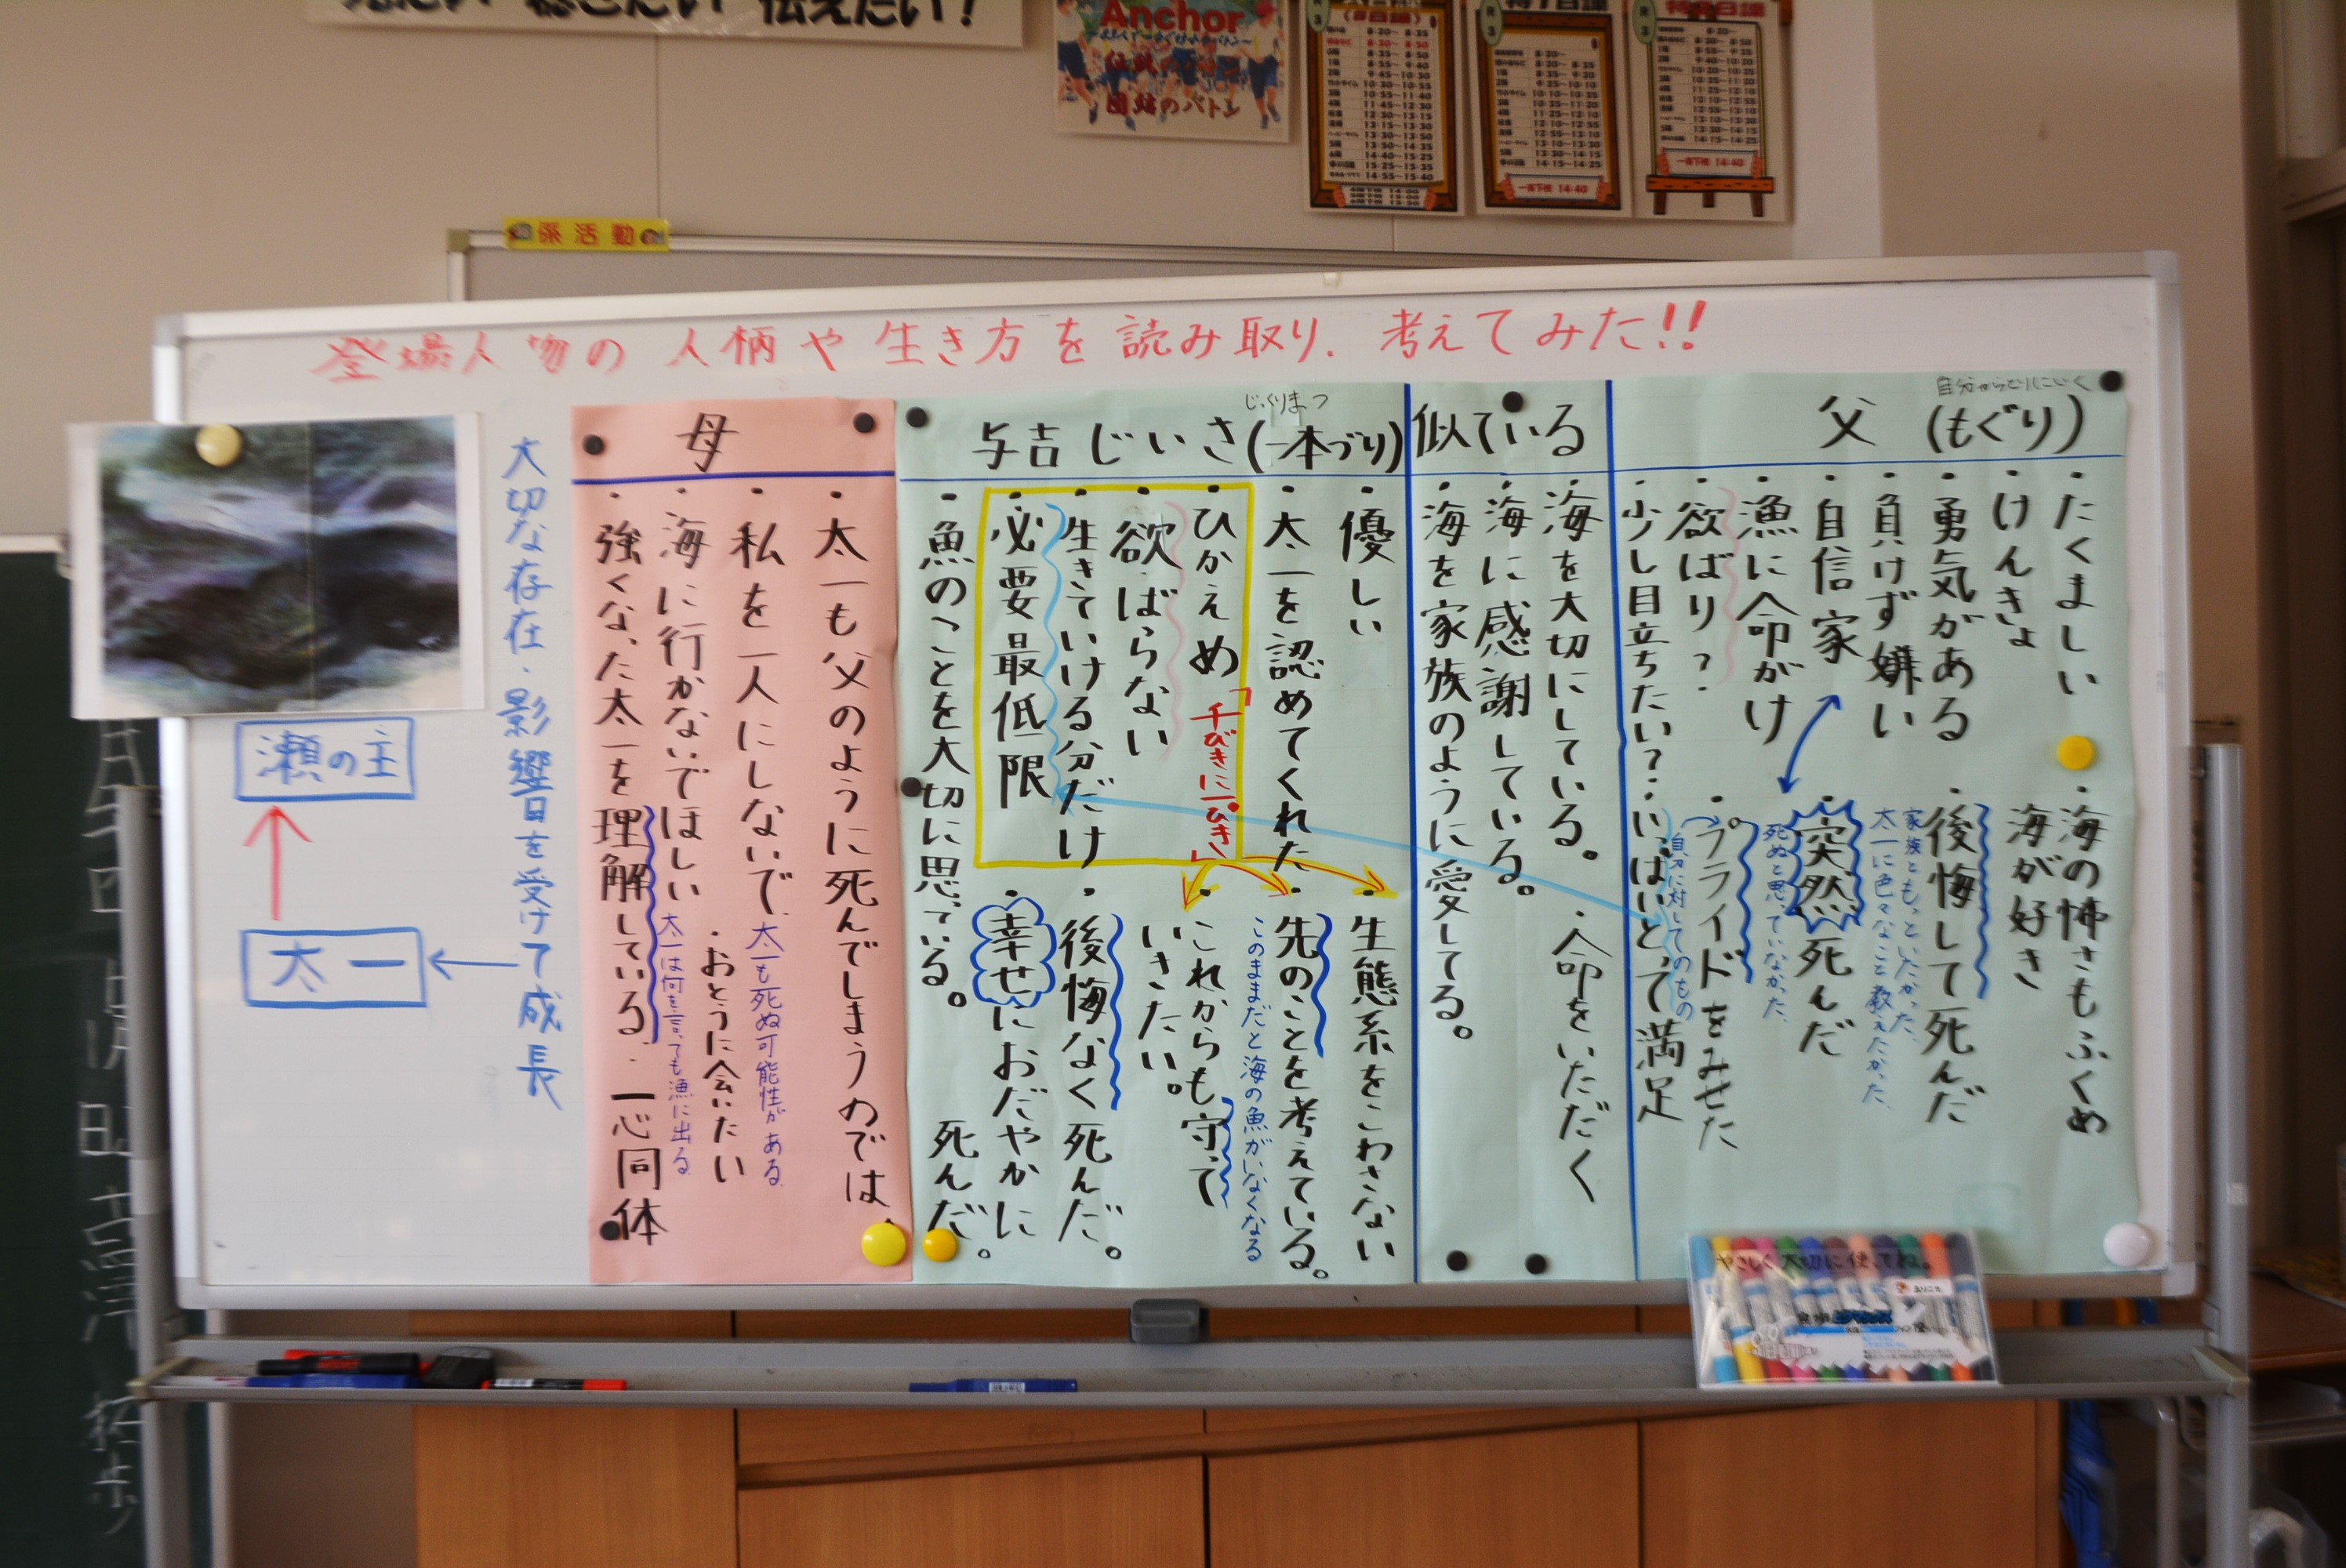 伝えたい！
Anchor
伝統のバトン
団結のバトン
特9日課
一斉下校 14:40
一斉下校 14:40
係活動
登場人物の人柄や生き方を読み取り、考えてみた!!
父（もぐり）
自分からとりにいく
・たくましい
・けんきょ
・勇気がある
・負けず嫌い
・自信家
・漁に命がけ
・欲ばり？
・少し目立ちたい？
・海の怖さもふくめ
海が好き
・後悔して死んだ
家族ともっといたかった、
太一に色々なこと教えたかった、
・突然死んだ
死ぬと思っていなかった、
・プライドをみせた
自分に対してのもの
・いっぱいとって満足
似ている
・海を大切にしている。
・海に感謝している。
・海を家族のように愛してる。
・命をいただく
与吉じいさ（一本づり）
じっくりまつ
・優しい
・太一を認めてくれた
・ひかえめ
「千びきに一ぴき」
・欲ばらない
・生きていける分だけ
・必要最低限
・魚のことを大切に思っている。
・生態系をこわさない
・先のことを考えている。
このままだと海の魚がいなくなる
・これからも守って
いきたい。
・後悔なく死んだ。
・幸せにおだやかに
死んだ。
母
・太一も父のように死んでしまうのでは、
・私を一人にしないで、
太一も死ぬ可能性がある
・海に行かないでほしい
・おとうに会いたい
太一は何を言っても漁に出る
・強くなった太一を理解している
・一心同体
大切な存在・影響を受けて成長
瀬の主
太一
やさしく大切に使ってね。